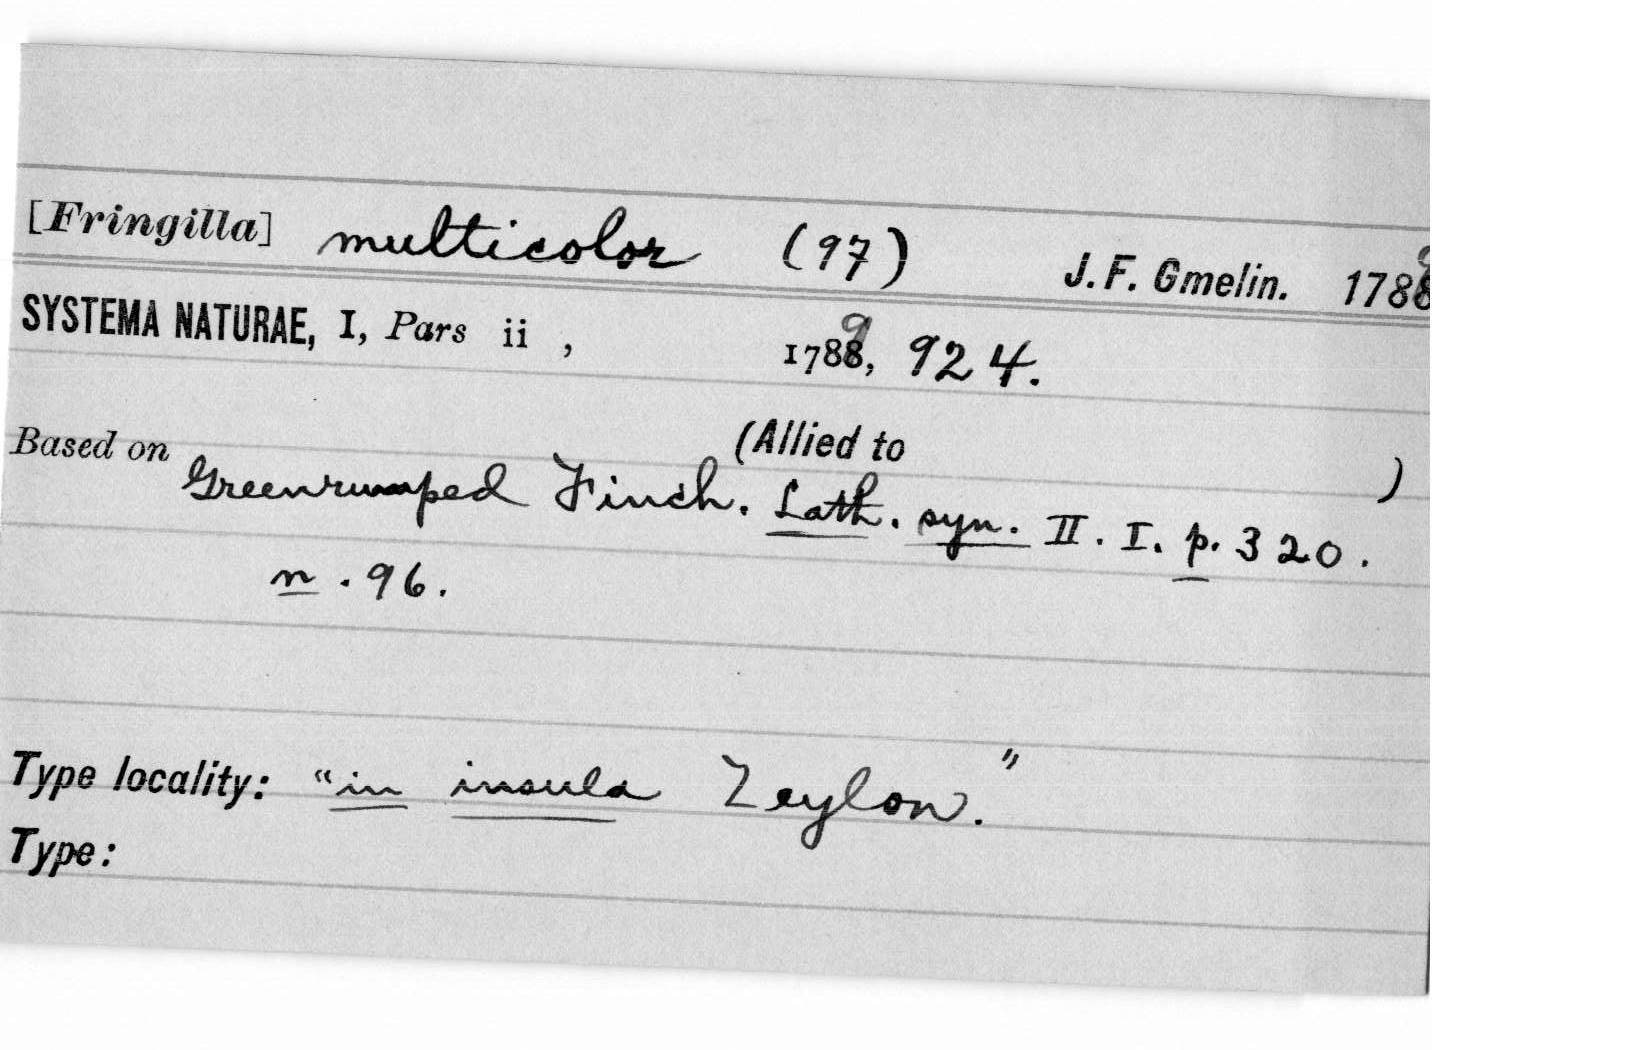 [Fringilla] multicolor (97) J. F. Gmelin. 1788 9
SYSTEMA NATURAE, I, Pars ii , 1788 9, 924.
Based on (Allied to )
Greenrumped Finch. Lath. syn. II. I. p. 320.
n. 96.
Type locality: "in insula Zeylon."
Type: